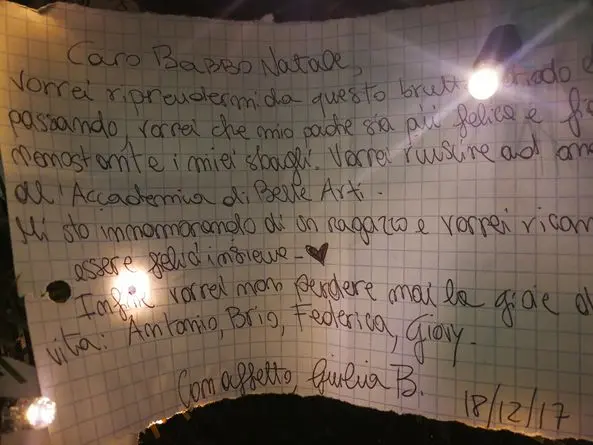 Caro Babbo Natale,
vorrei riprendermi da questo brutt
passando, vorrei che mio padre sia più felice e
nonostante i miei sbagli. Vorrei riuscire ad
all'Accademia di Belle Arti.
Mi sto innamorando di un ragazzo e vorrei
essere felici insieme - ♥
Infine vorrei non perdere mai le gioie
vita: Antonio, Brio, Federica, Giovy.
Con affetto, Giulia B.
18/12/17